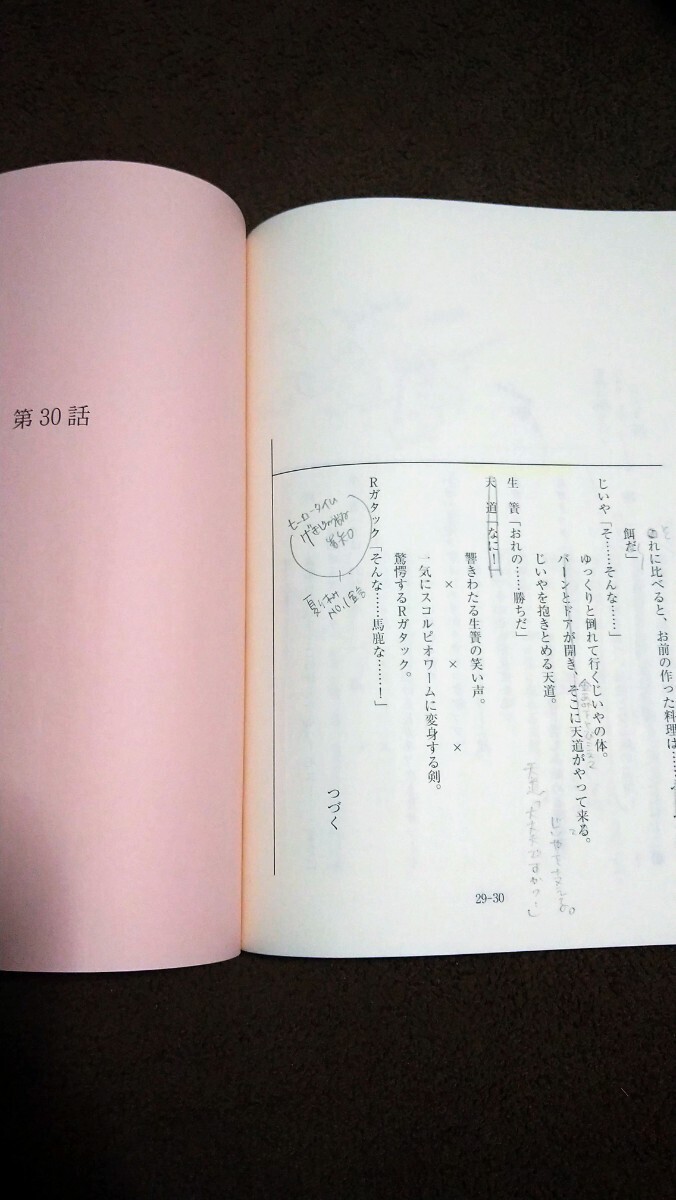 これに比べると、お前の作った料理は……
餌だ」
じいや「そ……そんな……」
ゆっくりと倒れて行くじいやの体。
バーンとドアが開き、そこに天道がやって来る。
じいやを抱きとめる天道。
生簀「おれの……勝ちだ」
天道「なに!」
響きわたる生簀の笑い声。
× × ×
一気にスコルピオワームに変身する剣。
驚愕するRガタック。
Rガタック「そんな……馬鹿な……!」
つづく
ヒーロータイム
NO.1宣言
天道「大丈夫ですか…」
29-30
第30話